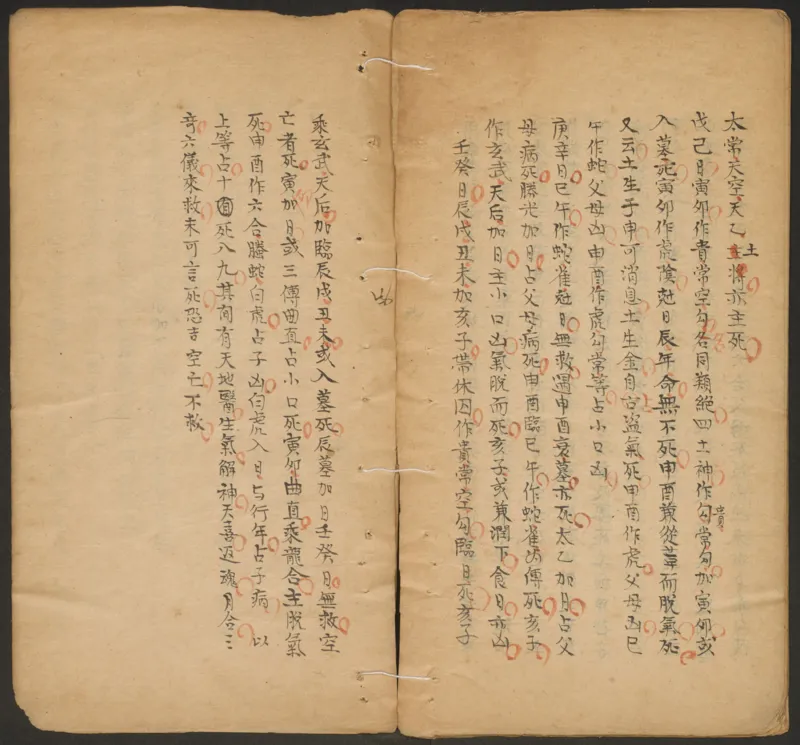 太常天空天乙土將亦主死
戊己日寅卯作貴常空勾各同類絕四土神作勾常勾加寅卯或
貴
入墓死寅卯作虎陰尅日辰年命無不死申酉兼從革而脫氣死
又云土生于申可消息土生金自古盜氣死申酉作虎父母凶巳
午作蛇父母凶申酉作虎勾常等占小口凶
庚辛日巳午作蛇雀尅日無救遇申酉衰墓亦死太乙加日占父
母病死勝光加日占父母病死申酉臨巳午作蛇雀凶傳死亥子
作玄武天后加日主小口凶氣脫而死亥子或兼潤下食日亦凶
壬癸日辰戌丑未加亥子帶休囚作貴常空勾臨日死亥子
乘玄武天后加臨辰戌丑未或入墓死辰墓加日壬癸日無救空
亡者死寅加日或三傳曲直占小口死寅卯曲直乘龍合主脫氣
死申酉作六合螣蛇白虎占子凶白虎入日与行年占子病 以
上等占十 死八九其間有天地醫生氣解神天喜返魂月合三
奇六儀來救未可言死恐吉空亡不救